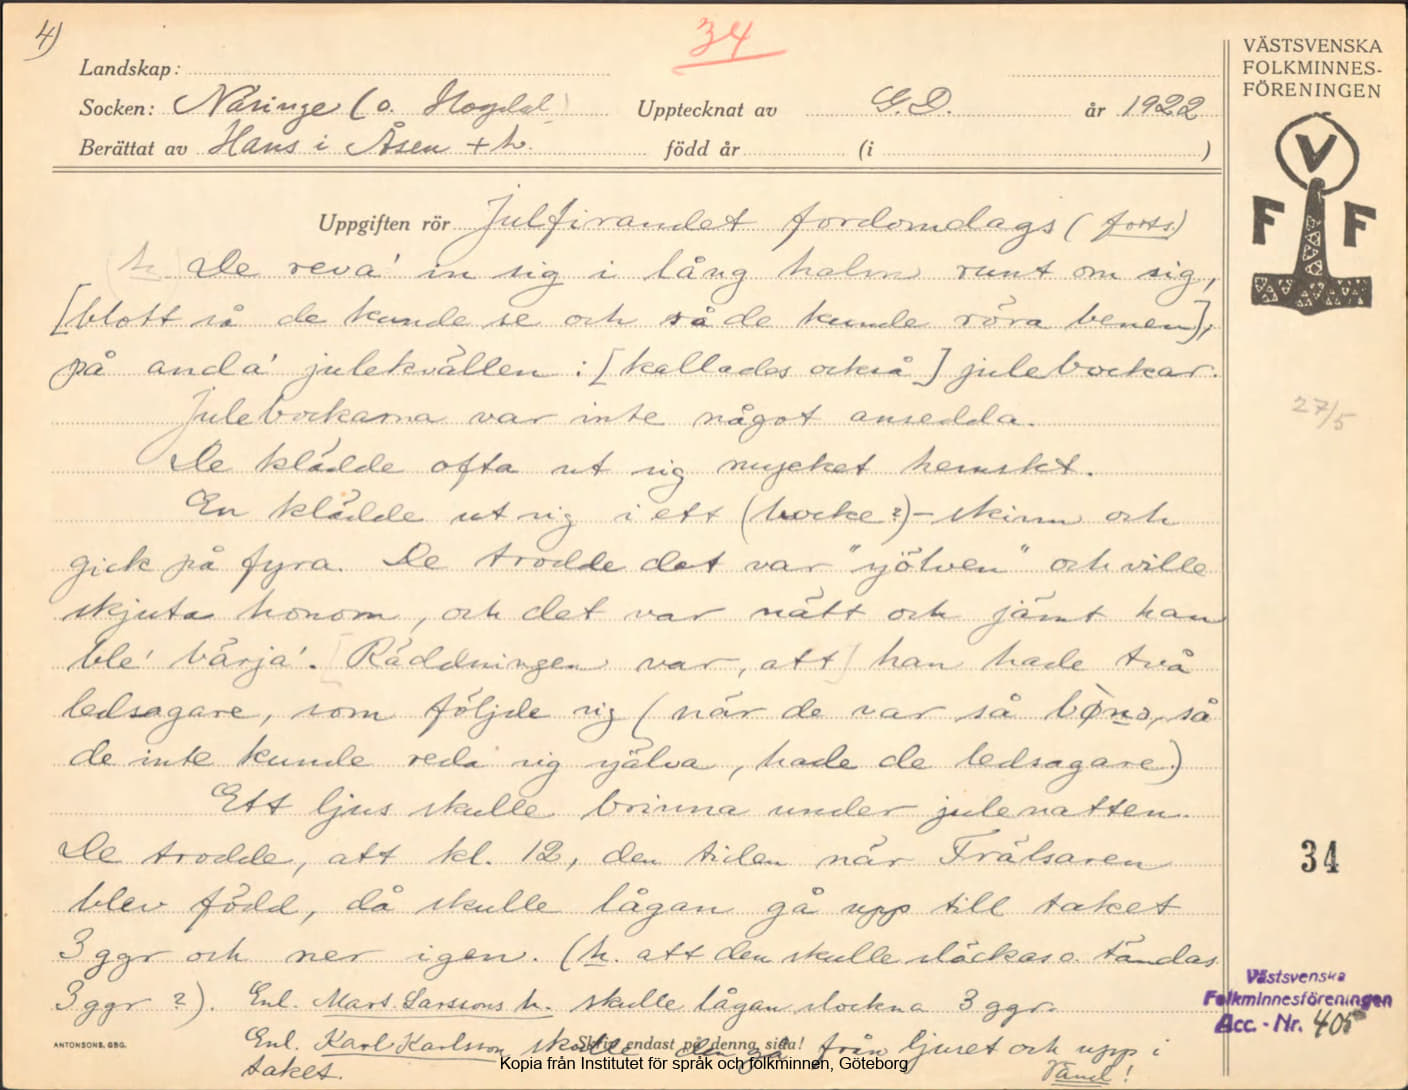 4)
34
VÄSTSVENSKA
FOLKMINNES-
FÖRENINGEN
V
F F
Landskap:
Socken: Näsinge (o. Hogdal) Upptecknat av G.D. år 1922
Berättat av Hans i Åsen + h. född år (i )
Uppgiften rör Julfirandet fordomdags (forts)
h. De reva' in sig i lång halm runt om sig,
[blott så de kunde se och så de kunde röra benen];
på anda' julekvällen: [kallades också] julebockar.
Julebockarna var inte något ansedda.
De klädde ofta ut sig mycket hemskt.
En klädde ut sig i ett (bocke?)-skinn och
gick på fyra. De trodde det var "sjölven" och ville
skjuta honom, och det var nätt och jämt han
ble' bärja'. [Räddningen var, att] han hade två
ledsagare, som följde sig (när de var så så
de inte kunde reda sig själva, hade de ledsagare.)
Ett ljus skulle brinna under julenatten.
De trodde, att kl. 12, den tiden när Frälsaren
blev född, då skulle lågan gå upp till taket
3 ggr och ner igen. (h. att den skulle släckas o. tändas
3 ggr ?). Enl. Mart. Larssons h. skulle lågan slockna 3 ggr.
Enl. Karl Karlsson skulle den gå från ljuset och upp i
taket. Vänd!
27/5
34
Västsvenska
Folkminnesföreningen
Acc.-Nr. 405
ANTONSONS, GBG.
Skriv endast på denna sida!
Kopia från Institutet för språk och folkminnen, Göteborg